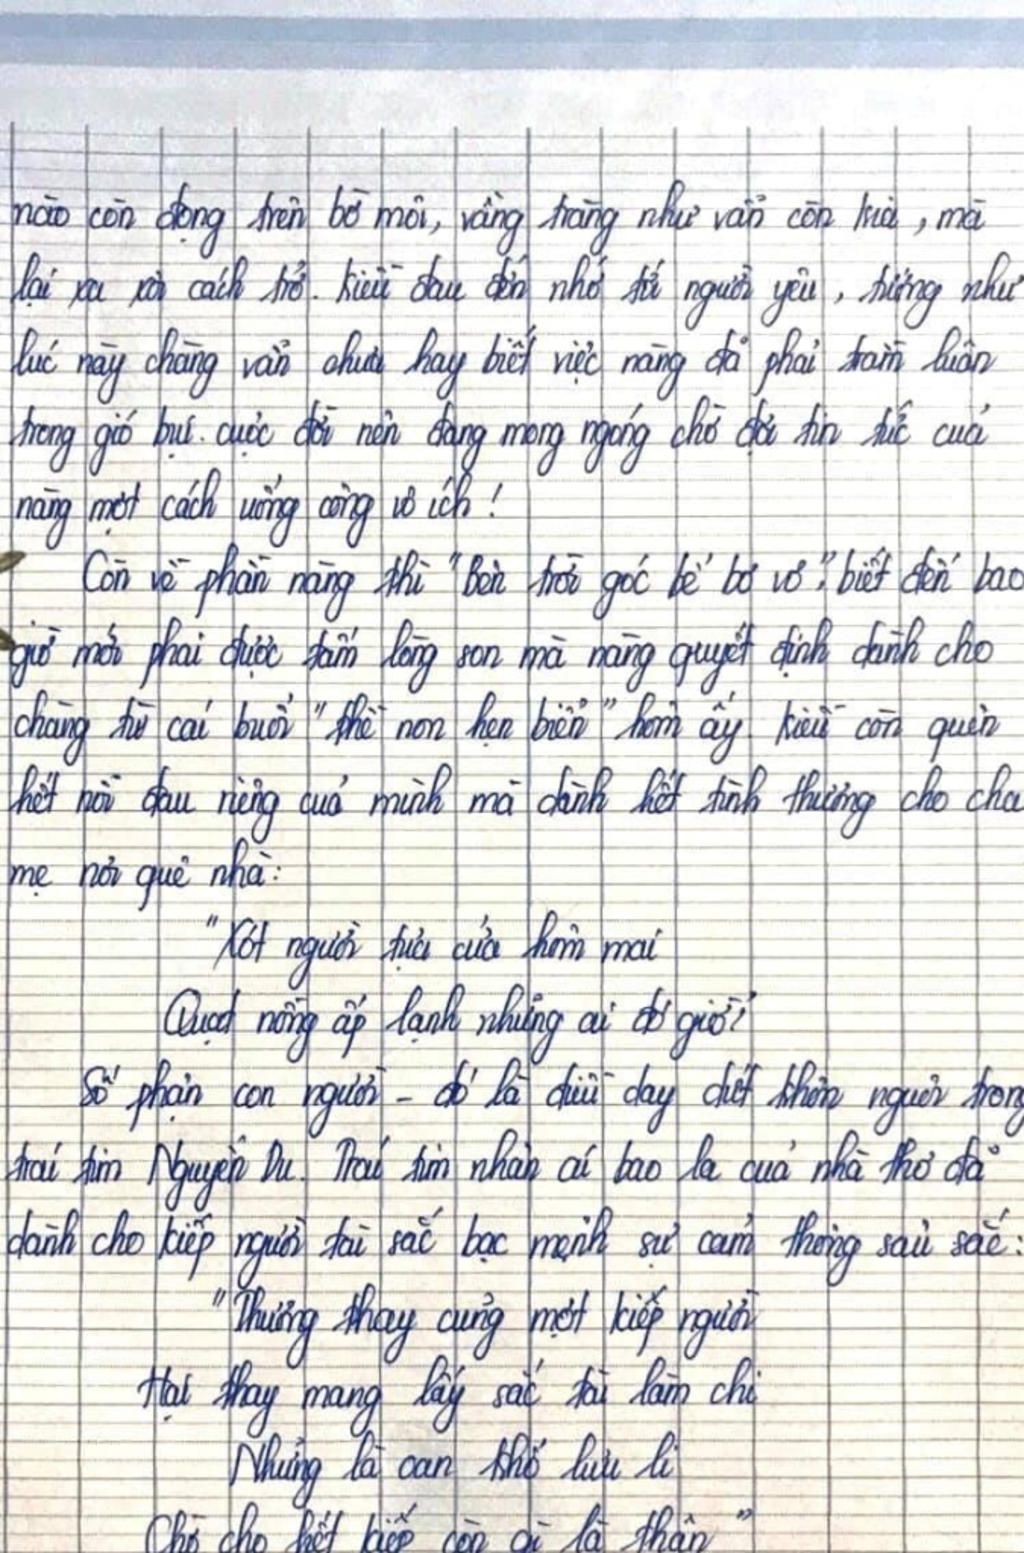 nào còn đọng trên bờ môi, vầng trăng như vẫn còn kia, mà
lại xa xôi cách trở. Kiều đau đớn nhớ tới người yêu, tưởng như
lúc này chàng vẫn chưa hay biết việc nàng đã phải trầm luân
trong gió bụi cuộc đời nên đang mong ngóng chờ đợi tin tức của
nàng một cách uổng công vô ích!
Còn về phần nàng thì "Bên trời góc bể bơ vơ", biết đến bao
giờ mới phai được tấm lòng son mà nàng quyết định dành cho
chàng từ cái buổi "thề non hẹn biển" hôm ấy. Kiều còn quên
hết nỗi đau riêng của mình mà dành hết tình thương cho cha
mẹ nơi quê nhà:
"Xót người tựa cửa hôm mai
Quạt nồng ấp lạnh những ai đó giờ?"
Số phận con người - đó là điều day dứt khôn nguôi trong
trái tim Nguyễn Du. Trái tim nhân ái bao la của nhà thơ đã
dành cho kiếp người tài sắc bạc mệnh sự cảm thông sâu sắc:
"Thương thay cũng một kiếp người
Hại thay mang lấy sắc tài làm chi
Những là oan khổ lưu li
Chờ cho hết kiếp còn gì là thân"